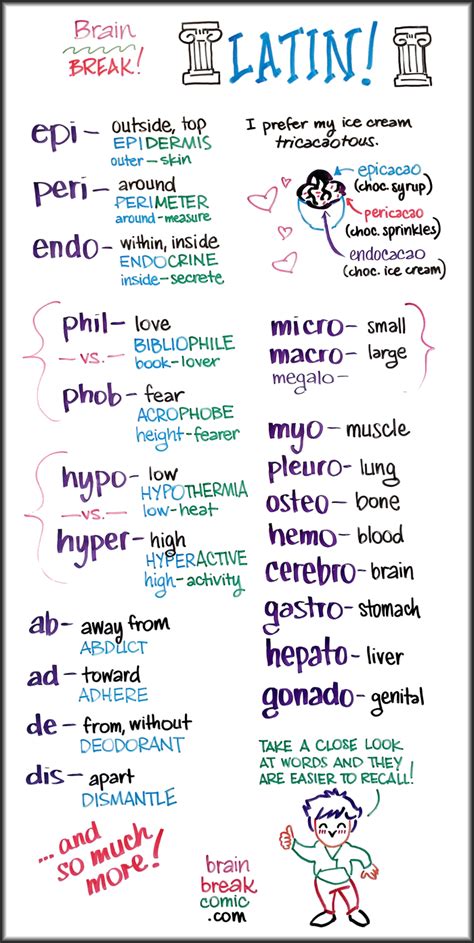 Brain
BREAK!
LATIN!
epi- outside, top
EPIDERMIS
outer-skin
peri- around
PERIMETER
around-measure
endo- within, inside
ENDOCRINE
inside-secrete
I prefer my ice cream
tricacaotous.
epicacao
(choc. syrup)
pericacao
(choc. sprinkles)
endocacao
(choc. ice cream)
phil- love
BIBLIOPHILE
-vs.- book-lover
phob- fear
ACROPHOBE
height-fearer
hypo- low
HYPOTHERMIA
-vs.- low-heat
hyper- high
HYPERACTIVE
high-activity
ab- away from
ABDUCT
ad- toward
ADHERE
de- from, without
DEODORANT
dis- apart
DISMANTLE
...and
so much
more!
micro- small
macro- large
megalo-
myo- muscle
pleuro- lung
osteo- bone
hemo- blood
cerebro- brain
gastro- stomach
hepato- liver
gonado- genital
TAKE A CLOSE LOOK
AT WORDS AND THEY
ARE EASIER TO RECALL!
brain
break
comic
.com